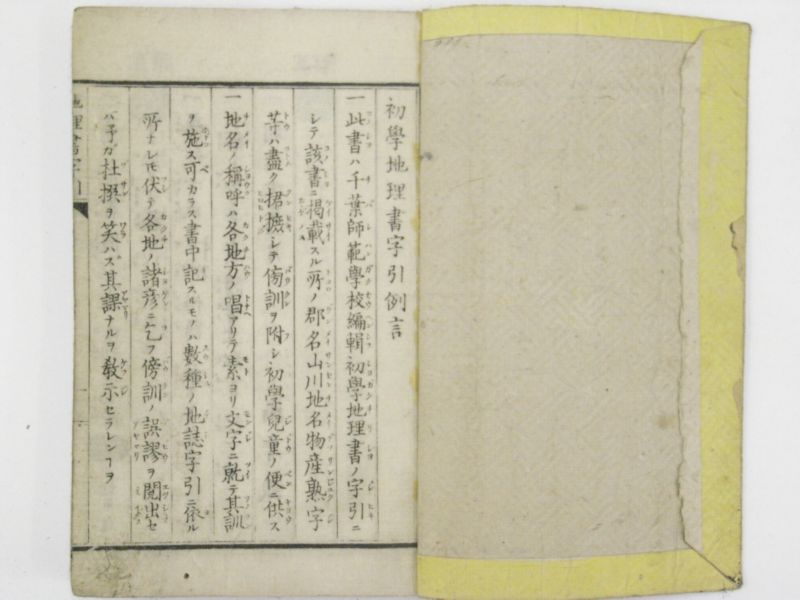 初學地理書字引例言
一此書ハ千葉師範學校編輯初學地理書ノ字引ニ
シテ該書ニ掲載スル所ノ郡名山川地名物産熟字
等ハ盡ク捃摭シテ傍訓ヲ附シ初學兒童ノ便ニ供ス
一地名ノ稱呼ハ各地方ノ唱アリテ素ヨリ文字ニ就テ其訓
ヲ施ス可カラス書中記スルモノハ數種ノ地誌字引ニ依ル
所ナレモ伏テ各地ノ諸彦ニ乞フ傍訓ノ誤謬ヲ閲出セ
バ予ガ杜撰ヲ笑ハズ其謬ナルヲ敎示セラレンヿヲ
地理書字引